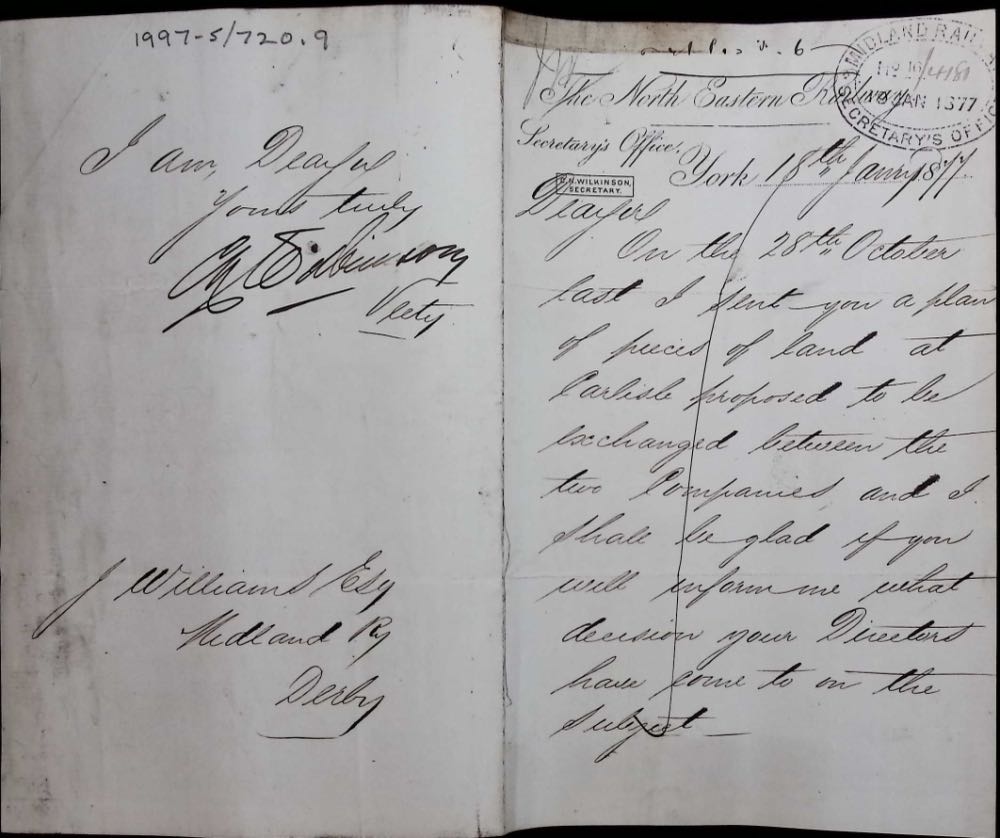 1997-5/720.9
I am, Dear Sir
Yours truly
C N Wilkinson
Secty
J Williams Esq
Midland Ry
Derby
The North Eastern Railway
MIDLAND RAI
18 JAN 1877
SECRETARY'S OFFIC
Secretary's Office,
York 18th Janry 1877
C.N. WILKINSON,
SECRETARY.
Dear Sir
On the 28th October
last I sent you a plan
of pieces of land at
Carlisle proposed to be
exchanged between the
two Companies and I
shall be glad if you
will inform me what
decision your Directors
have come to on the
subject